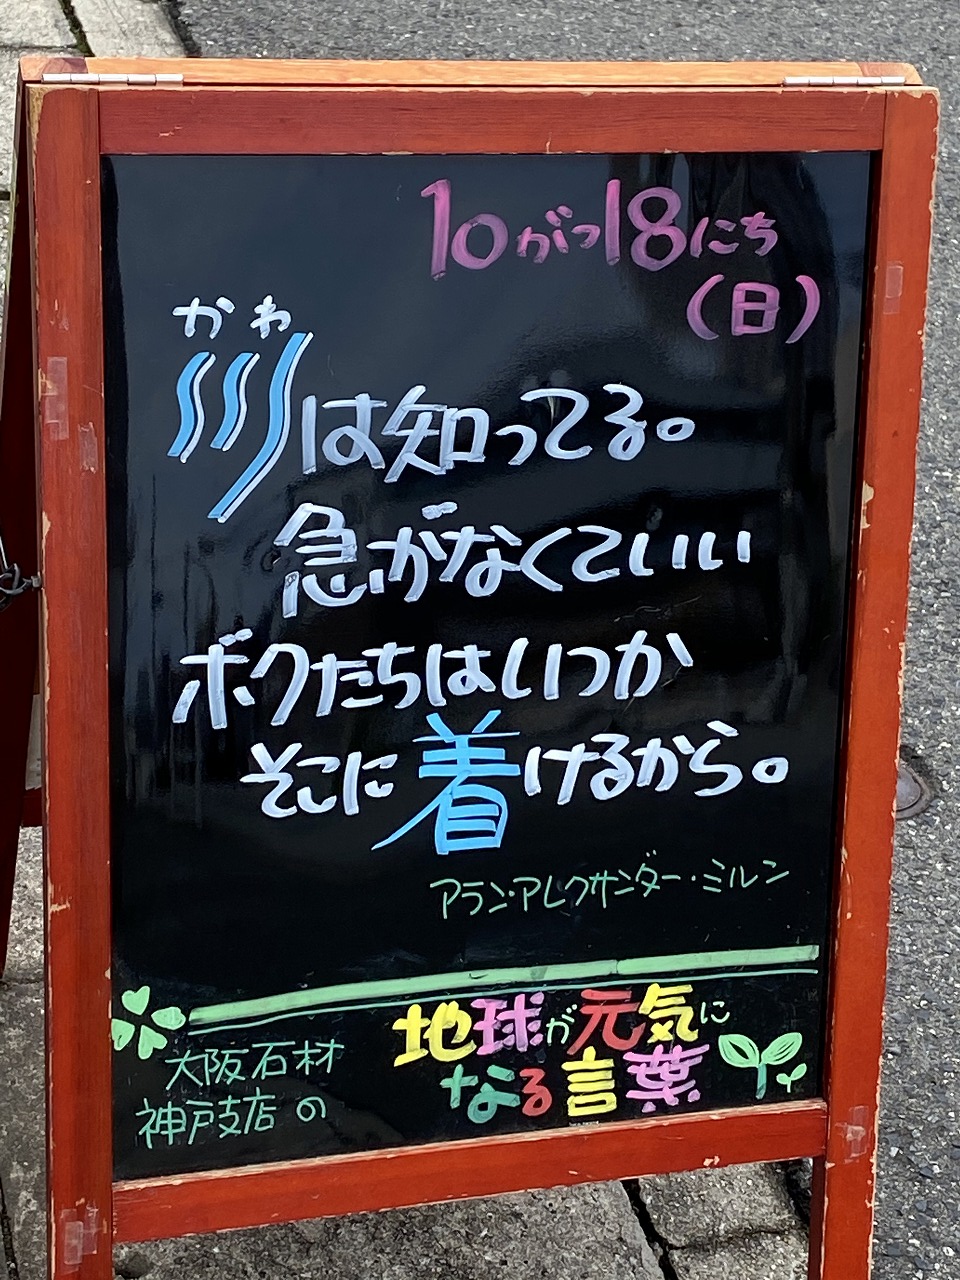 10がつ18にち
(日)
かわ
川は知ってる。
急がなくていい
ボクたちはいつか
そこに着けるから。
アラン・アレクサンダー・ミルン
大阪石材
神戸支店の
地球が元気に
なる言葉